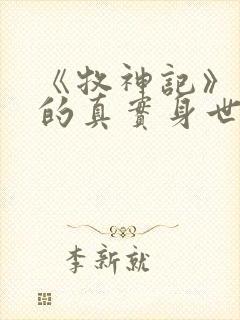 《牧神記》
的真實身世
李新就